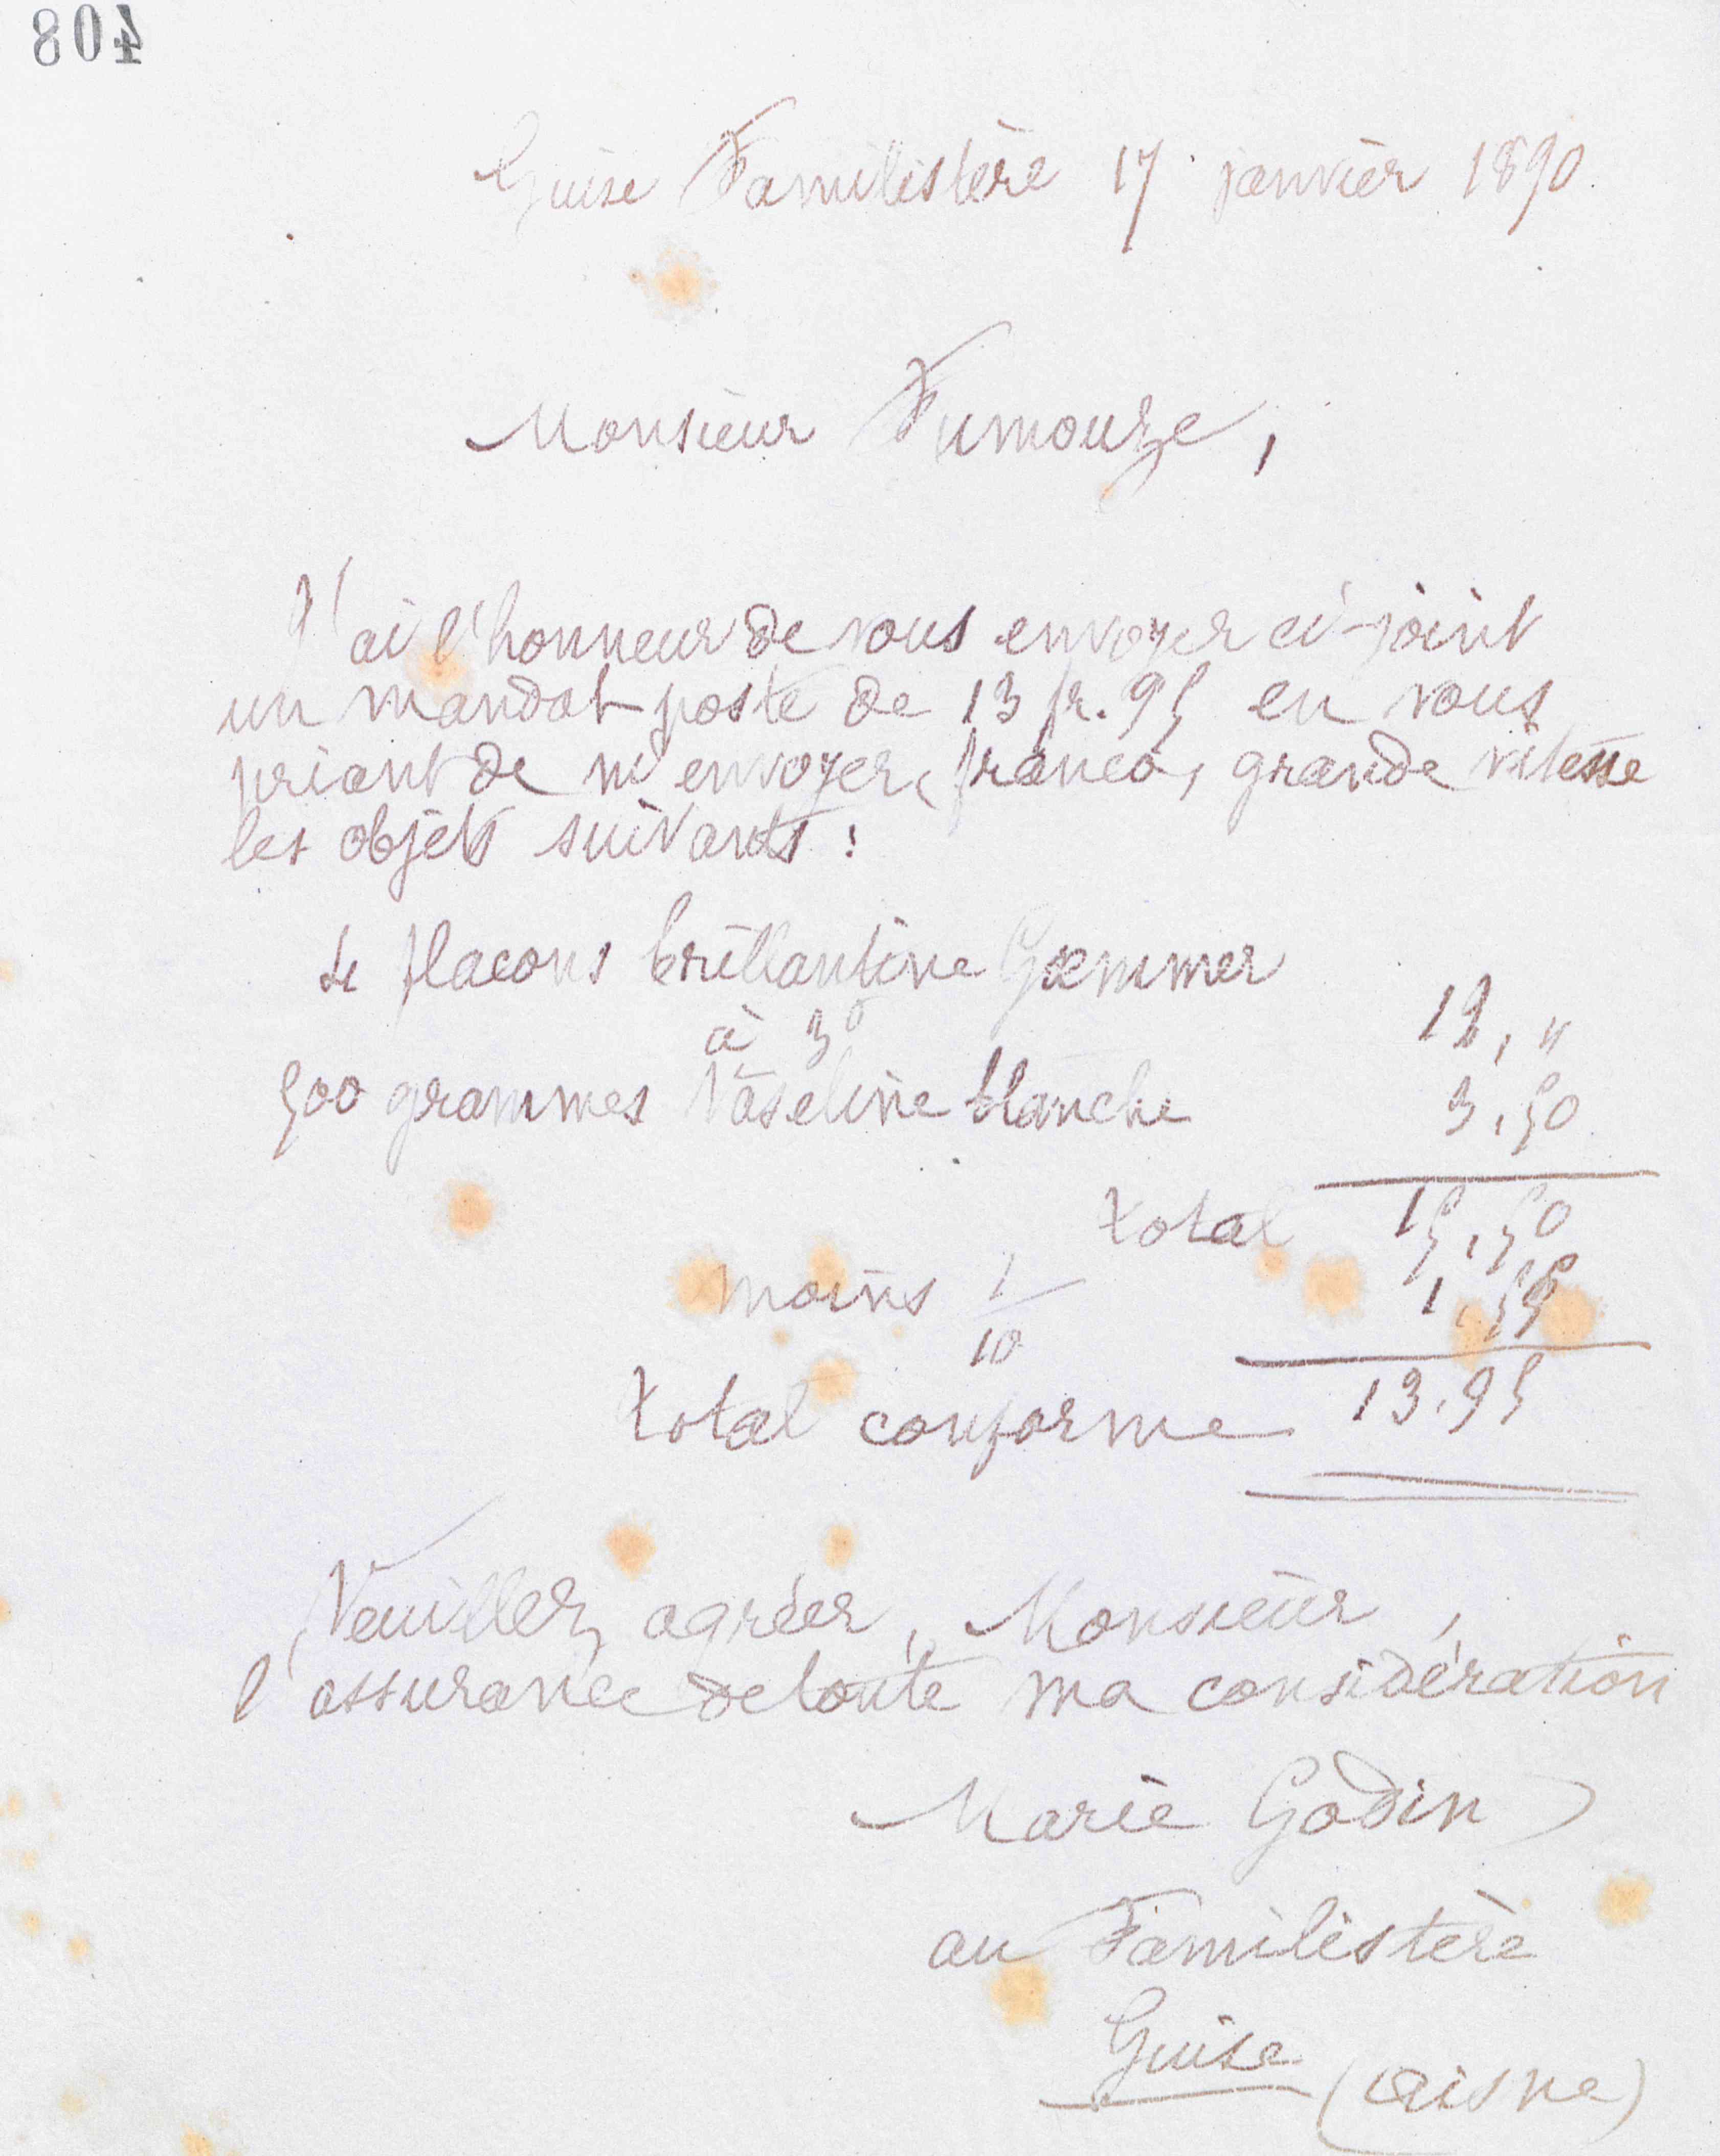 408
Guise Familistère 17 janvier 1890
Monsieur Fumouze,
J'ai l'honneur de vous envoyer ci-joint
un mandat poste de 13 fr. 95 en vous
priant de m'envoyer, franco, grande vitesse
les objets suivants :
4 flacons brillantine Gæmmer
à 3f 12, "
500 grammes Vaseline blanche 3,50
total 15,50
moins 1/10 1,55
total conforme 13.95
Veuillez agréer, Monsieur,
l'assurance de toute ma considération
Marie Godin
au Familistère
Guise (Aisne)